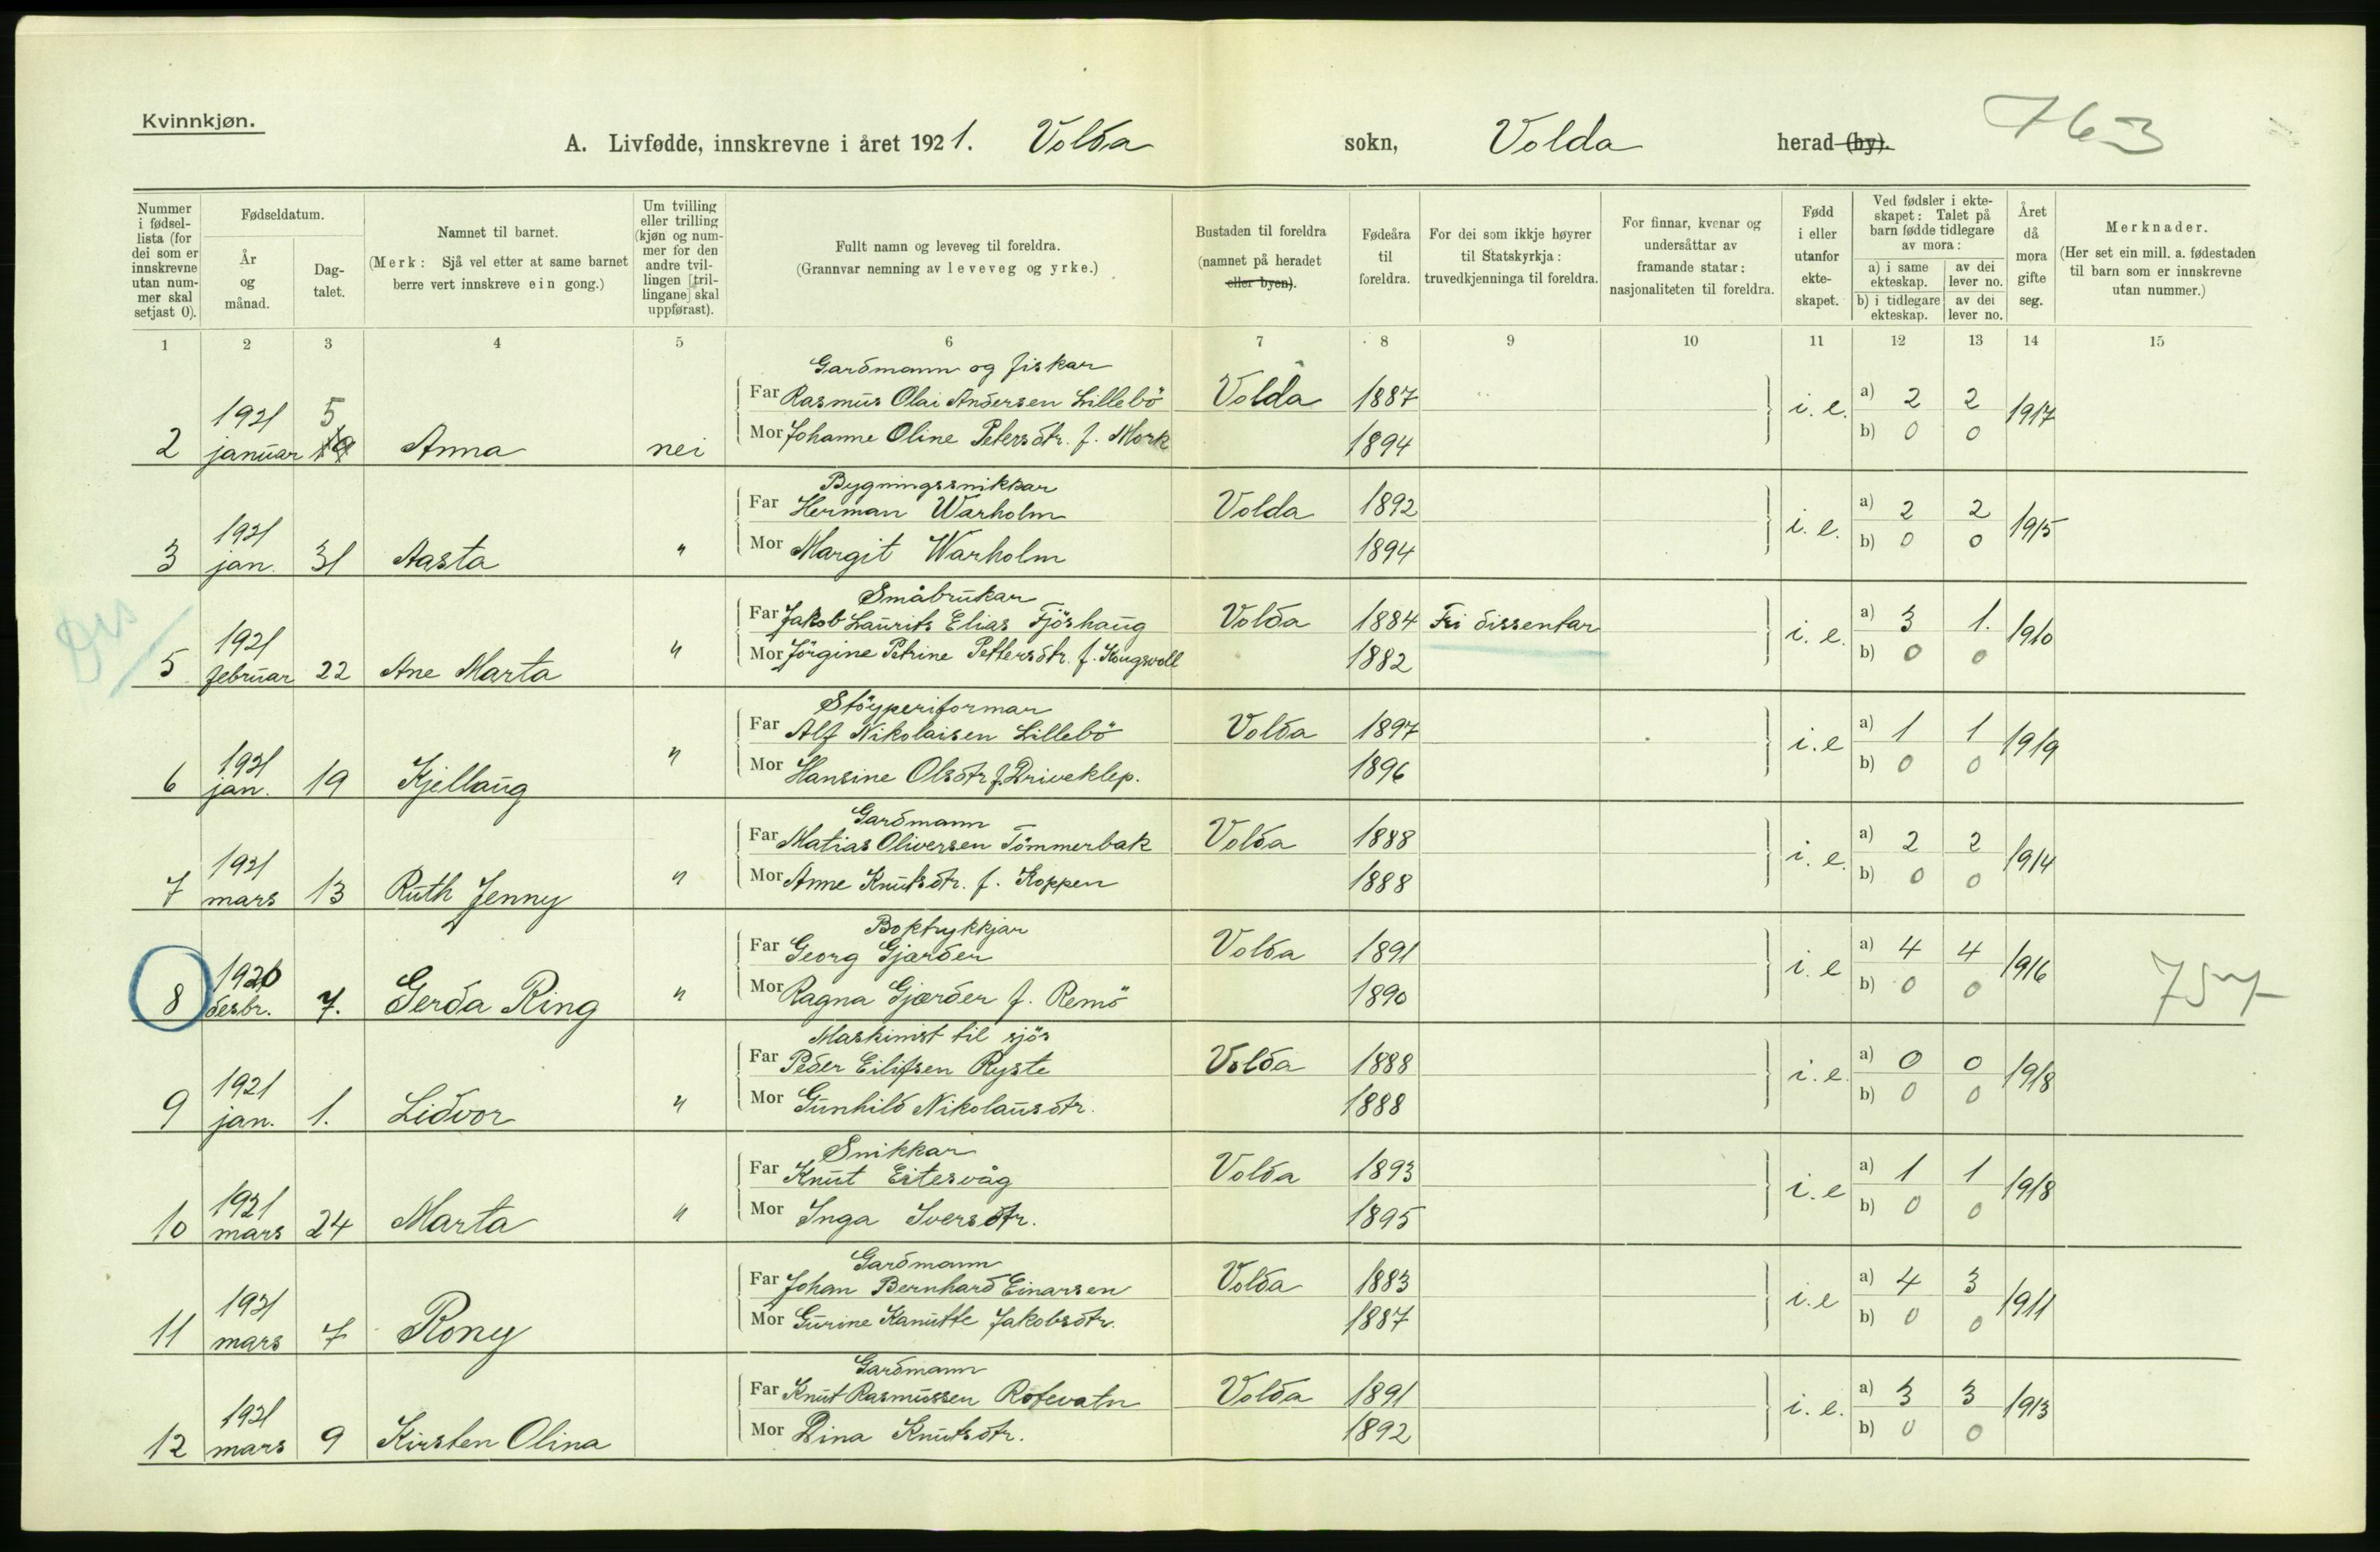 Kvinnkjøn.
763
A. Livfødde, innskrevne i året 1921. Volda sokn, Volda herad (by).
Nummer i fødsel-lista (for dei som er innskrevne utan num-mer skal setjast 0).
Fødseldatum.
År og månad.
Dag-talet.
Namnet til barnet.
(Merk: Sjå vel etter at same barnet berre vert innskreve ein gong.)
Um tvilling eller trilling (kjøn og num-mer for den andre tvil-lingen [tril-lingane] skal uppførast).
Fullt namn og leveveg til foreldra.
(Grannvar nemning av leveveg og yrke.)
Bustaden til foreldra (namnet på heradet eller byen).
Fødeåra til foreldra.
For dei som ikkje høyrer til Statskyrkja: truvedkjenninga til foreldra.
For finnar, kvenar og undersåttar av framande statar: nasjonaliteten til foreldra.
Fødd i eller utanfor ekte-skapet.
Ved fødsler i ekte-skapet: Talet på barn fødde tidlegare av mora:
a) i same ekteskap. av dei lever no.
b) i tidlegare ekteskap. av dei lever no.
Året då mora gifte seg.
Merknader.
(Her set ein mill. a. fødestaden til barn som er innskrevne utan nummer.)
1 2 3 4 5 6 7 8 9 10 11 12 13 14 15
Gardmann og fiskar
2 1921 januar 5 Anna nei Far Rasmus Olai Andersen Lillebö Volda 1887 i. e. a) 2 2 1917
Mor Johanne Oline Petersdtr. f. Mork 1894 b) 0 0
Bygningssnikkar
3 1921 jan. 31 Aasta " Far Herman Warholm Volda 1892 i. e. a) 2 2 1915
Mor Margit Warholm 1894 b) 0 0
Småbrukar
5 1921 februar 22 Ane Marta " Far Jakob Laurits Elias Fjöshaug Volda 1884 Fri dissentar i. e. a) 3 1. 1910
Mor Jörgine Petrine Pettersdtr. f. Kongsvoll 1882 b) 0 0
Stöyperiformar
6 1921 jan. 19 Kjellaug " Far Alf Nikolaisen Lillebö Volda 1897 i. e a) 1 1 1919
Mor Hansine Olsdtr f. Driveklep. 1896 b) 0 0
Gardmann
7 1921 mars 13 Ruth Jenny " Far Matias Oliversen Tömmerbak Volda 1888 i. e. a) 2 2 1914
Mor Anne Knutsdtr. f. Koppen 1888 b) 0 0
Boktrykkjar
8 1920 desbr. 7. Gerda Ring " Far Georg Gjærder Volda 1891 i. e a) 4 4 1916 757
Mor Ragna Gjærder f. Remö 1890 b) 0 0
Maskinist til sjös
9 1921 jan. 1. Lidvor " Far Peder Eilifsen Ryste Volda 1888 i. e. a) 0 0 1918
Mor Gunhild Nikolausdtr. 1888 b) 0 0
Snikkar
10 1921 mars 24 Marta " Far Knut Eitesvåg Volda 1893 i. e a) 1 1 1918
Mor Inga Iversdtr. 1895 b) 0 0
Gardmann
11 1921 mars 7 Rony Far Johan Bernhard Einarsen Volda 1883 i. e a) 4 3 1911
Mor Gurine Kanutte Jakobsdtr. 1887 b) 0 0
Gardmann
12 1921 mars 9 Kirsten Olina Far Knut Rasmussen Rotevatn Volda 1891 i. e. a) 3 3 1913
Mor Dina Knutsdtr. 1892 b) 0 0